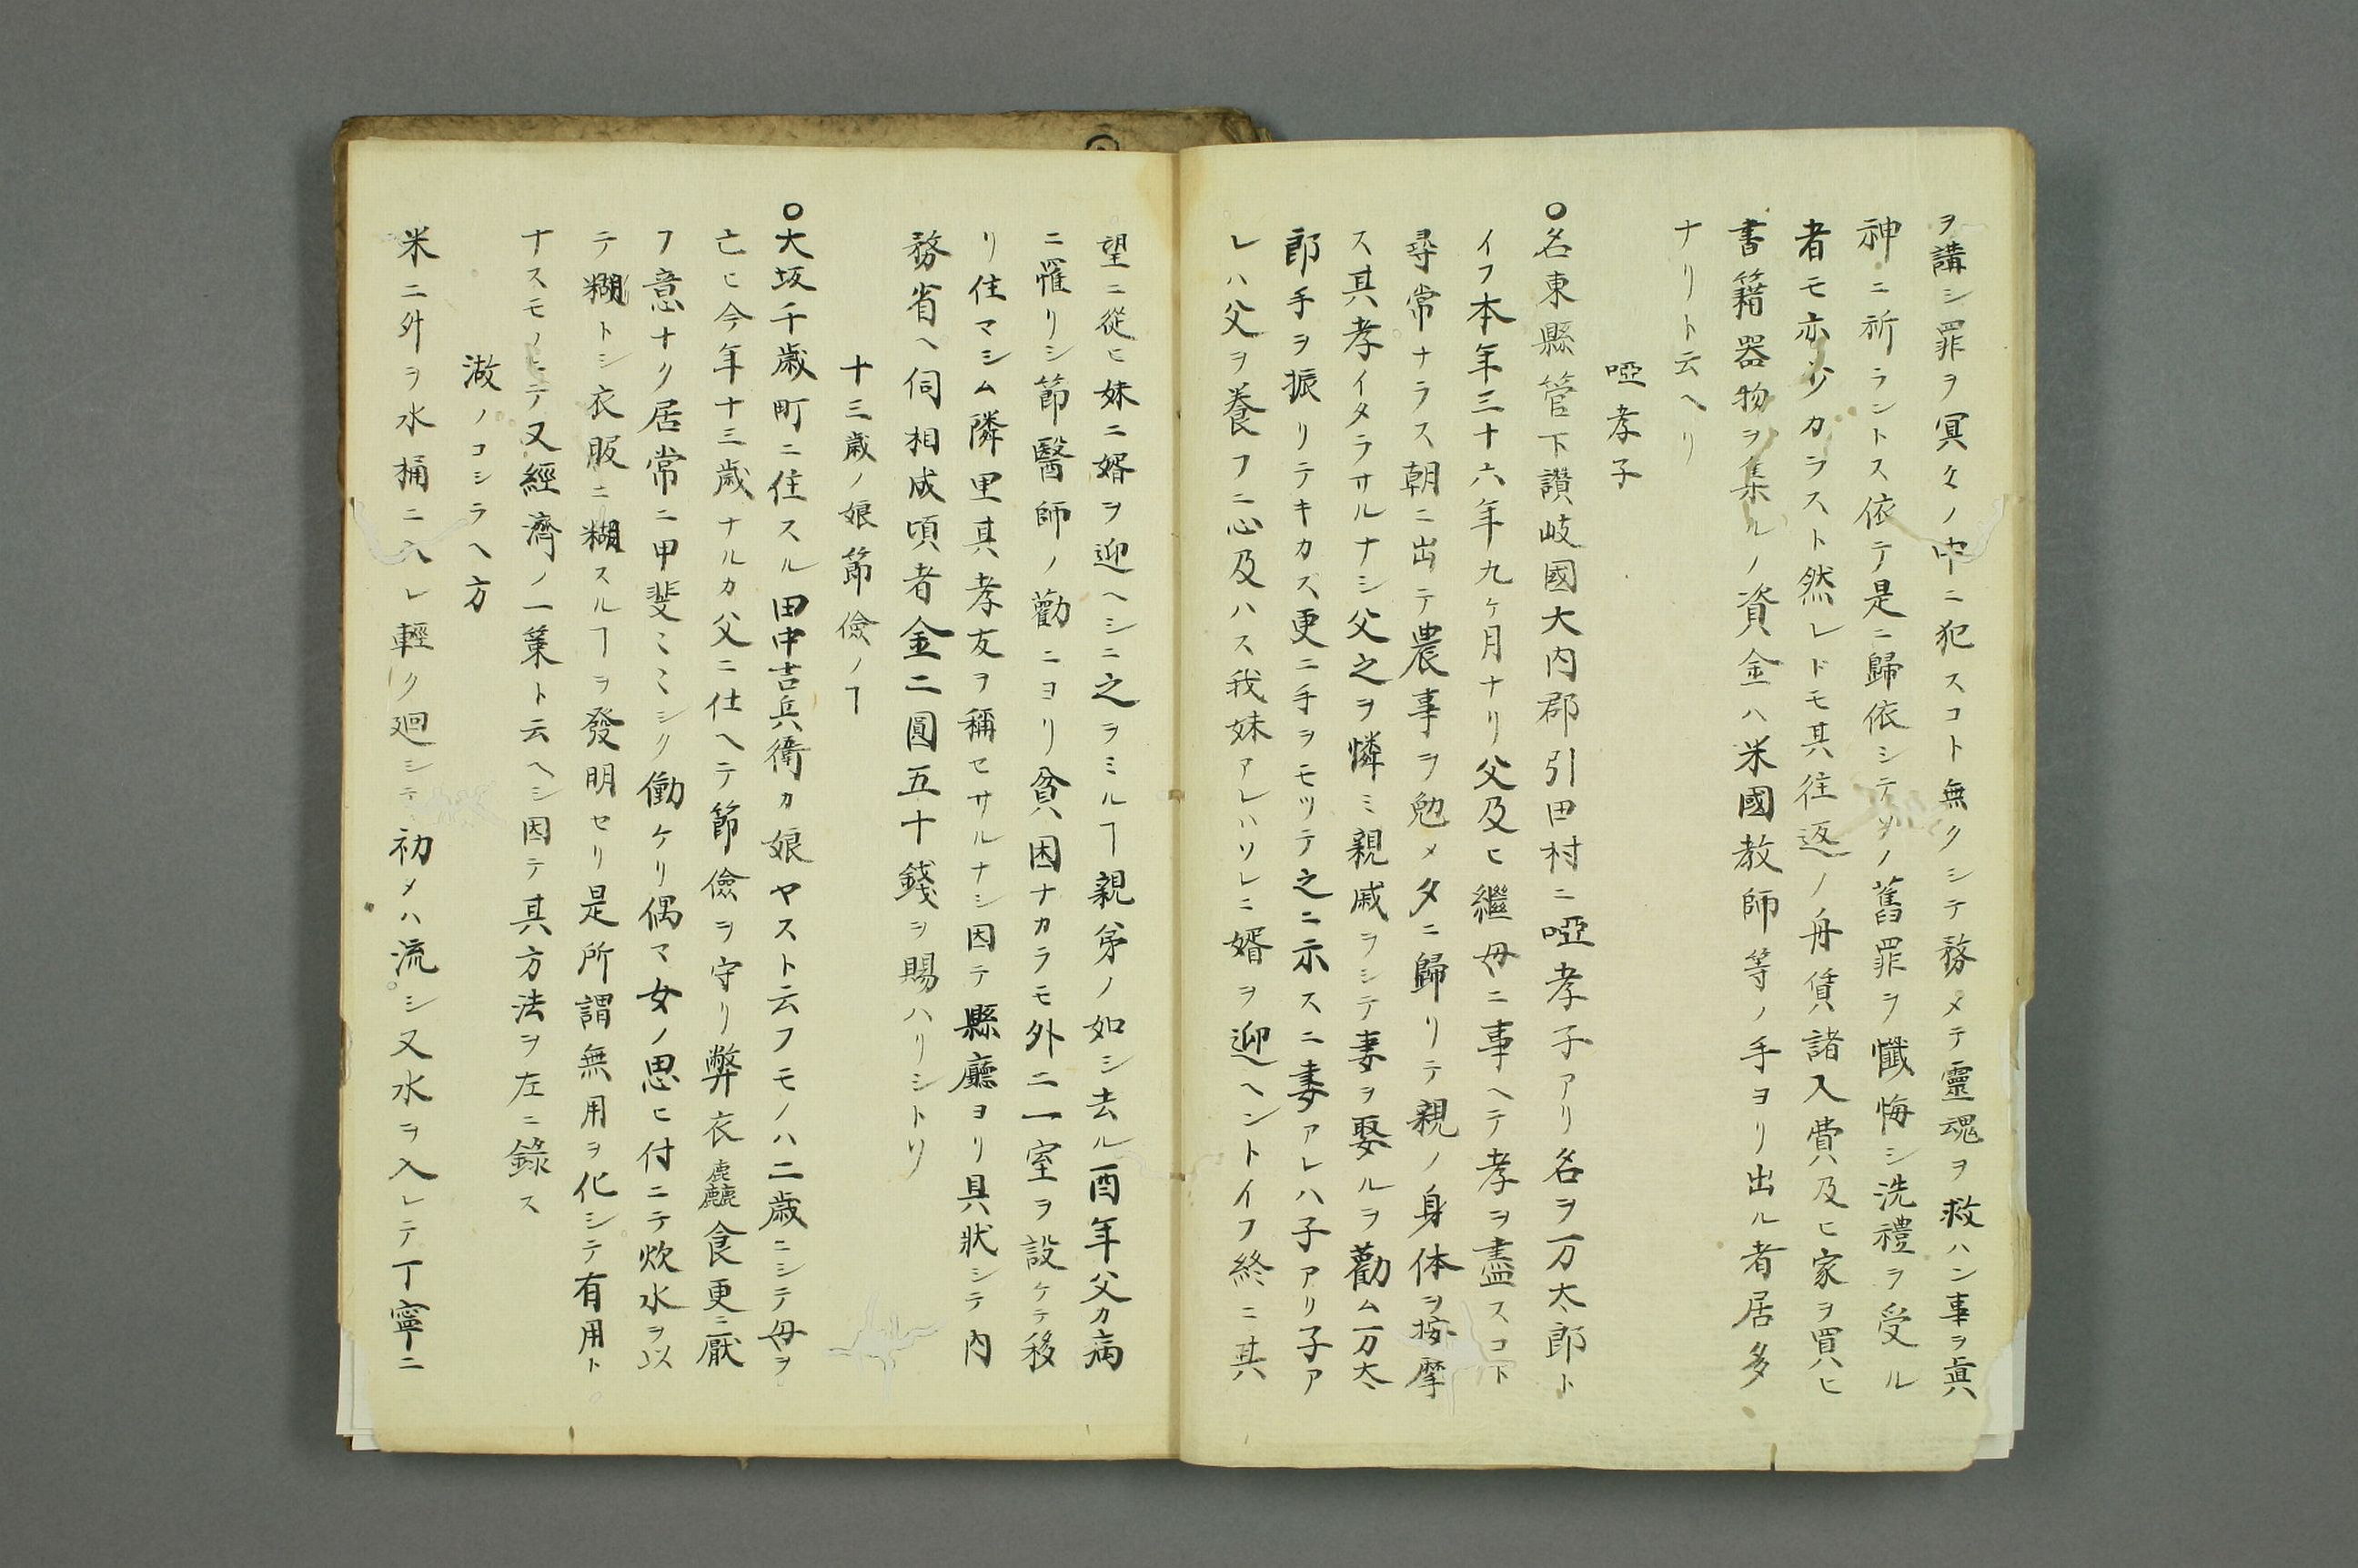 ヲ講シ罪ヲ冥々ノ中ニ犯スコト無クシテ務メテ靈魂ヲ救ハン事ヲ眞
神ニ祈ラントス依テ是ニ歸依シテソノ舊罪ヲ懺悔シ洗禮ヲ受ル
者モ亦少カラスト然レドモ其往返ノ舟賃諸入費及ヒ家ヲ買ヒ
書籍器物ヲ集ルノ資金ハ米國教師等ノ手ヨリ出ル者居多
ナリト云ヘリ
啞孝子
○名東縣管下讚岐國大内郡引田村ニ啞孝子アリ名ヲ万太郎ト
イフ本年三十六年九ヶ月ナリ父及ヒ繼母ニ事ヘテ孝ヲ盡スコト
尋常ナラス朝ニ出テ農事ヲ勉メ夕ニ歸リテ親ノ身体ヲ按摩
ス其孝イタラサルナシ父之ヲ憐ミ親戚ヲシテ妻ヲ娶ルヲ勸ム万太
郎手ヲ振リテキカズ更ニ手ヲモツテ之ニ示スニ妻アレハ子アリ子ア
レハ父ヲ養フニ心及ハス我妹アレハソレニ婿ヲ迎ヘントイフ終ニ其
望ニ從ヒ妹ニ婿ヲ迎ヘシニ之ヲミルヿ親弟ノ如シ去ル酉年父カ病
ニ罹リシ節醫師ノ勸ニヨリ貧困ナカラモ外ニ一室ヲ設ケテ移
リ住マシム隣里其孝友ヲ稱セサルナシ因テ縣廳ヨリ具狀シテ内
務省ヘ伺相成頃者金二圓五十錢ヲ賜ハリシトソ
十三歳ノ娘節儉ノヿ
○大坂千歳町ニ住スル田中吉兵衛カ娘ヤスト云フモノハ二歳ニシテ母ヲ
亡ヒ今年十三歳ナルカ父ニ仕ヘテ節儉ヲ守リ弊衣麤食更ニ厭
フ意ナク居常ニ甲斐ミミシク働ケリ偶マ女ノ思ヒ付ニテ炊水ヲ以
テ糊トシ衣服ニ糊スルヿヲ發明セリ是所謂無用ヲ化シテ有用ト
ナスモノニテ又經濟ノ一策ト云ヘシ因テ其方法ヲ左ニ錄ス
漵ノコシラヘ方
米ニ升ヲ水桶ニ入レ輕ク廻シテ初メハ流シ又水ヲ入レテ丁寧ニ